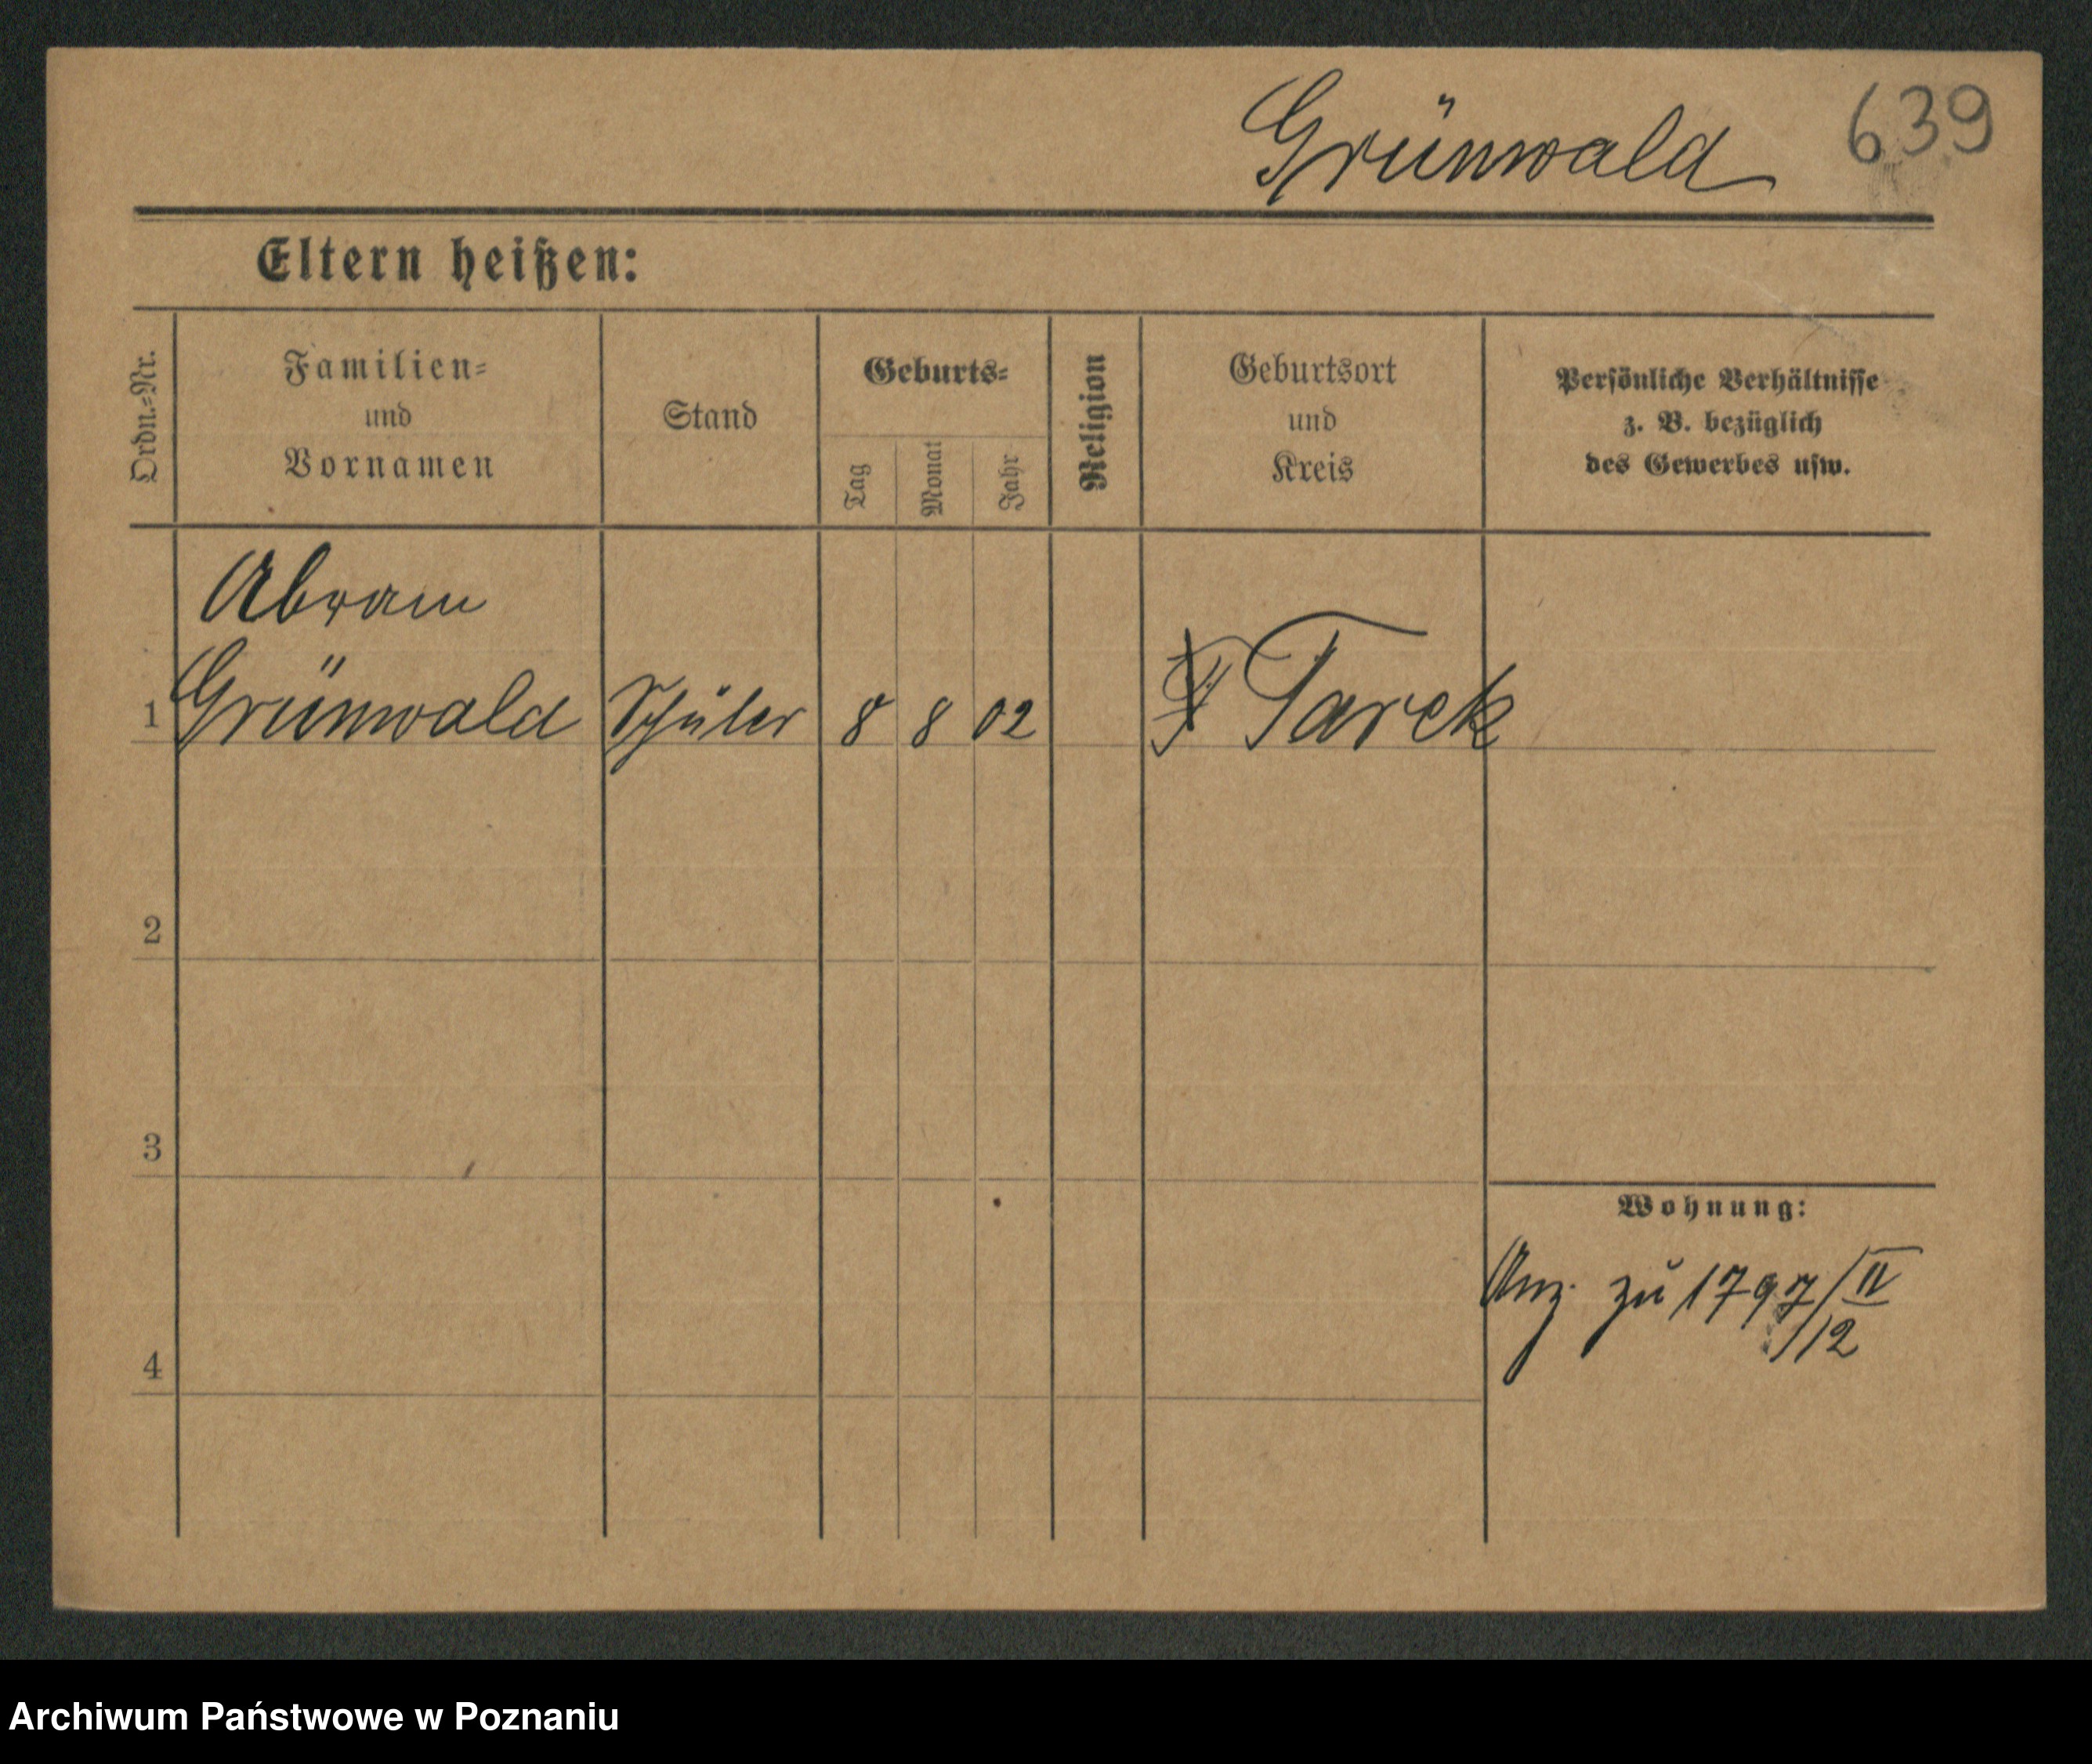 639
Grünwald
Eltern heißen:
Ordn.-Nr.
Familien-
und
Vornamen
Stand
Geburts-
Tag
Monat
Jahr
Religion
Geburtsort
und
Kreis
Persönliche Verhältnisse
z. B. bezüglich
des Gewerbes usw.
Abram
1 Grünwald Schüler 8 8 02 Tarek
2
3
Wohnung:
Anz. zu 1797/IV
/12
4
Archiwum Państwowe w Poznaniu